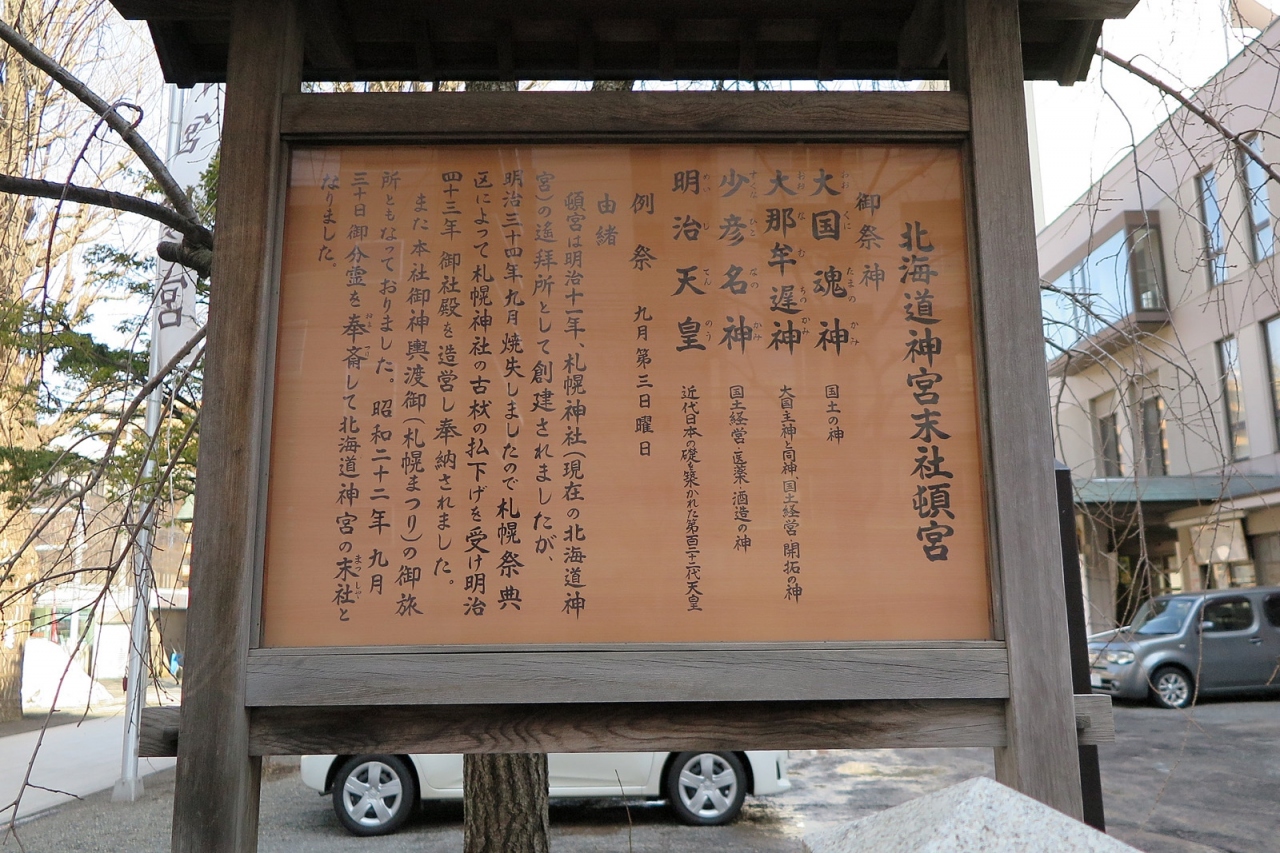 北海道神宮末社頓宮
御祭神
大国魂神 国土の神
おおくにたまのかみ
大那牟遅神 大国主神と同神、国土経営・開拓の神
おおなむちのかみ
少彦名神 国土経営・医薬・酒造の神
すくなひとなのかみ
明治天皇 近代日本の礎を築かれた第百二十二代天皇
めいじてんのう
例祭 九月第三日曜日
由緒
頓宮は明治十一年、札幌神社(現在の北海道神
宮)の遙拝所として創建されましたが、
明治三十四年九月焼失しましたので札幌祭典
区によって札幌神社の古材の払下げを受け明治
四十三年 御社殿を造営し奉納されました。
また本社御神輿渡御(札幌まつり)の御旅
所ともなっておりました。昭和二十二年 九月
三十日御分霊を奉斎して北海道神宮の末社と
なりました。
宮
宮